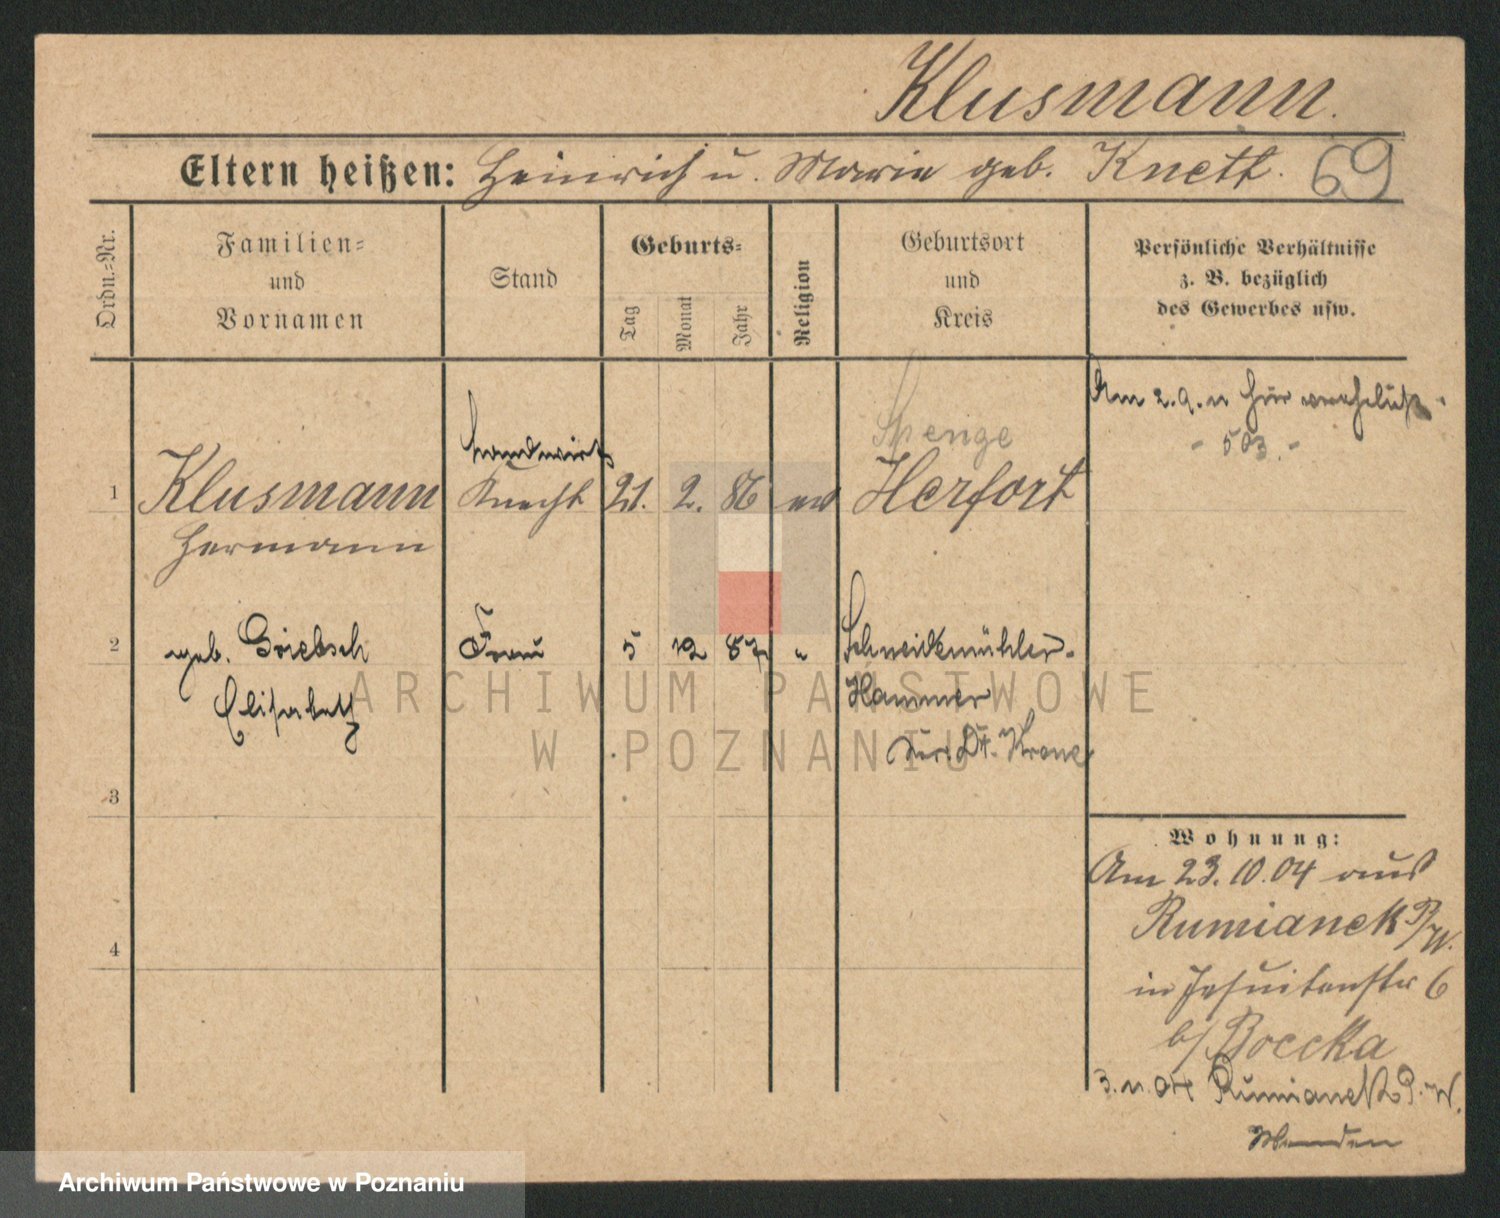 Klusmann.
Eltern heißen: Heinrich u. Marie geb. Knett. 69
Ordn.-Nr.
Familien-
und
Vornamen
Stand
Geburts-
Tag
Monat
Jahr
Religion
Geburtsort
und
Kreis
Persönliche Verhältnisse
z. B. bezüglich
des Gewerbes usw.
Am 2. 9. 11 hier
- 503. -
Landwirt
Spenge
1 Klusmann Knecht 21. 2. 86 ev Herfort
Hermann
2 geb. Griebsch Frau 5 12 87 " Schneidemühler-
Elisabeth Hammer
Dt. Krone
3
4
Wohnung:
Am 23. 10. 04 aus
Rumianek P/W.
in Jesuitenstr 6
b/ Boecka
3. 11. 04 Rumianek P. W.
Wenden
ARCHIWUM PAŃSTWOWE
W POZNANIU
Archiwum Państwowe w Poznaniu